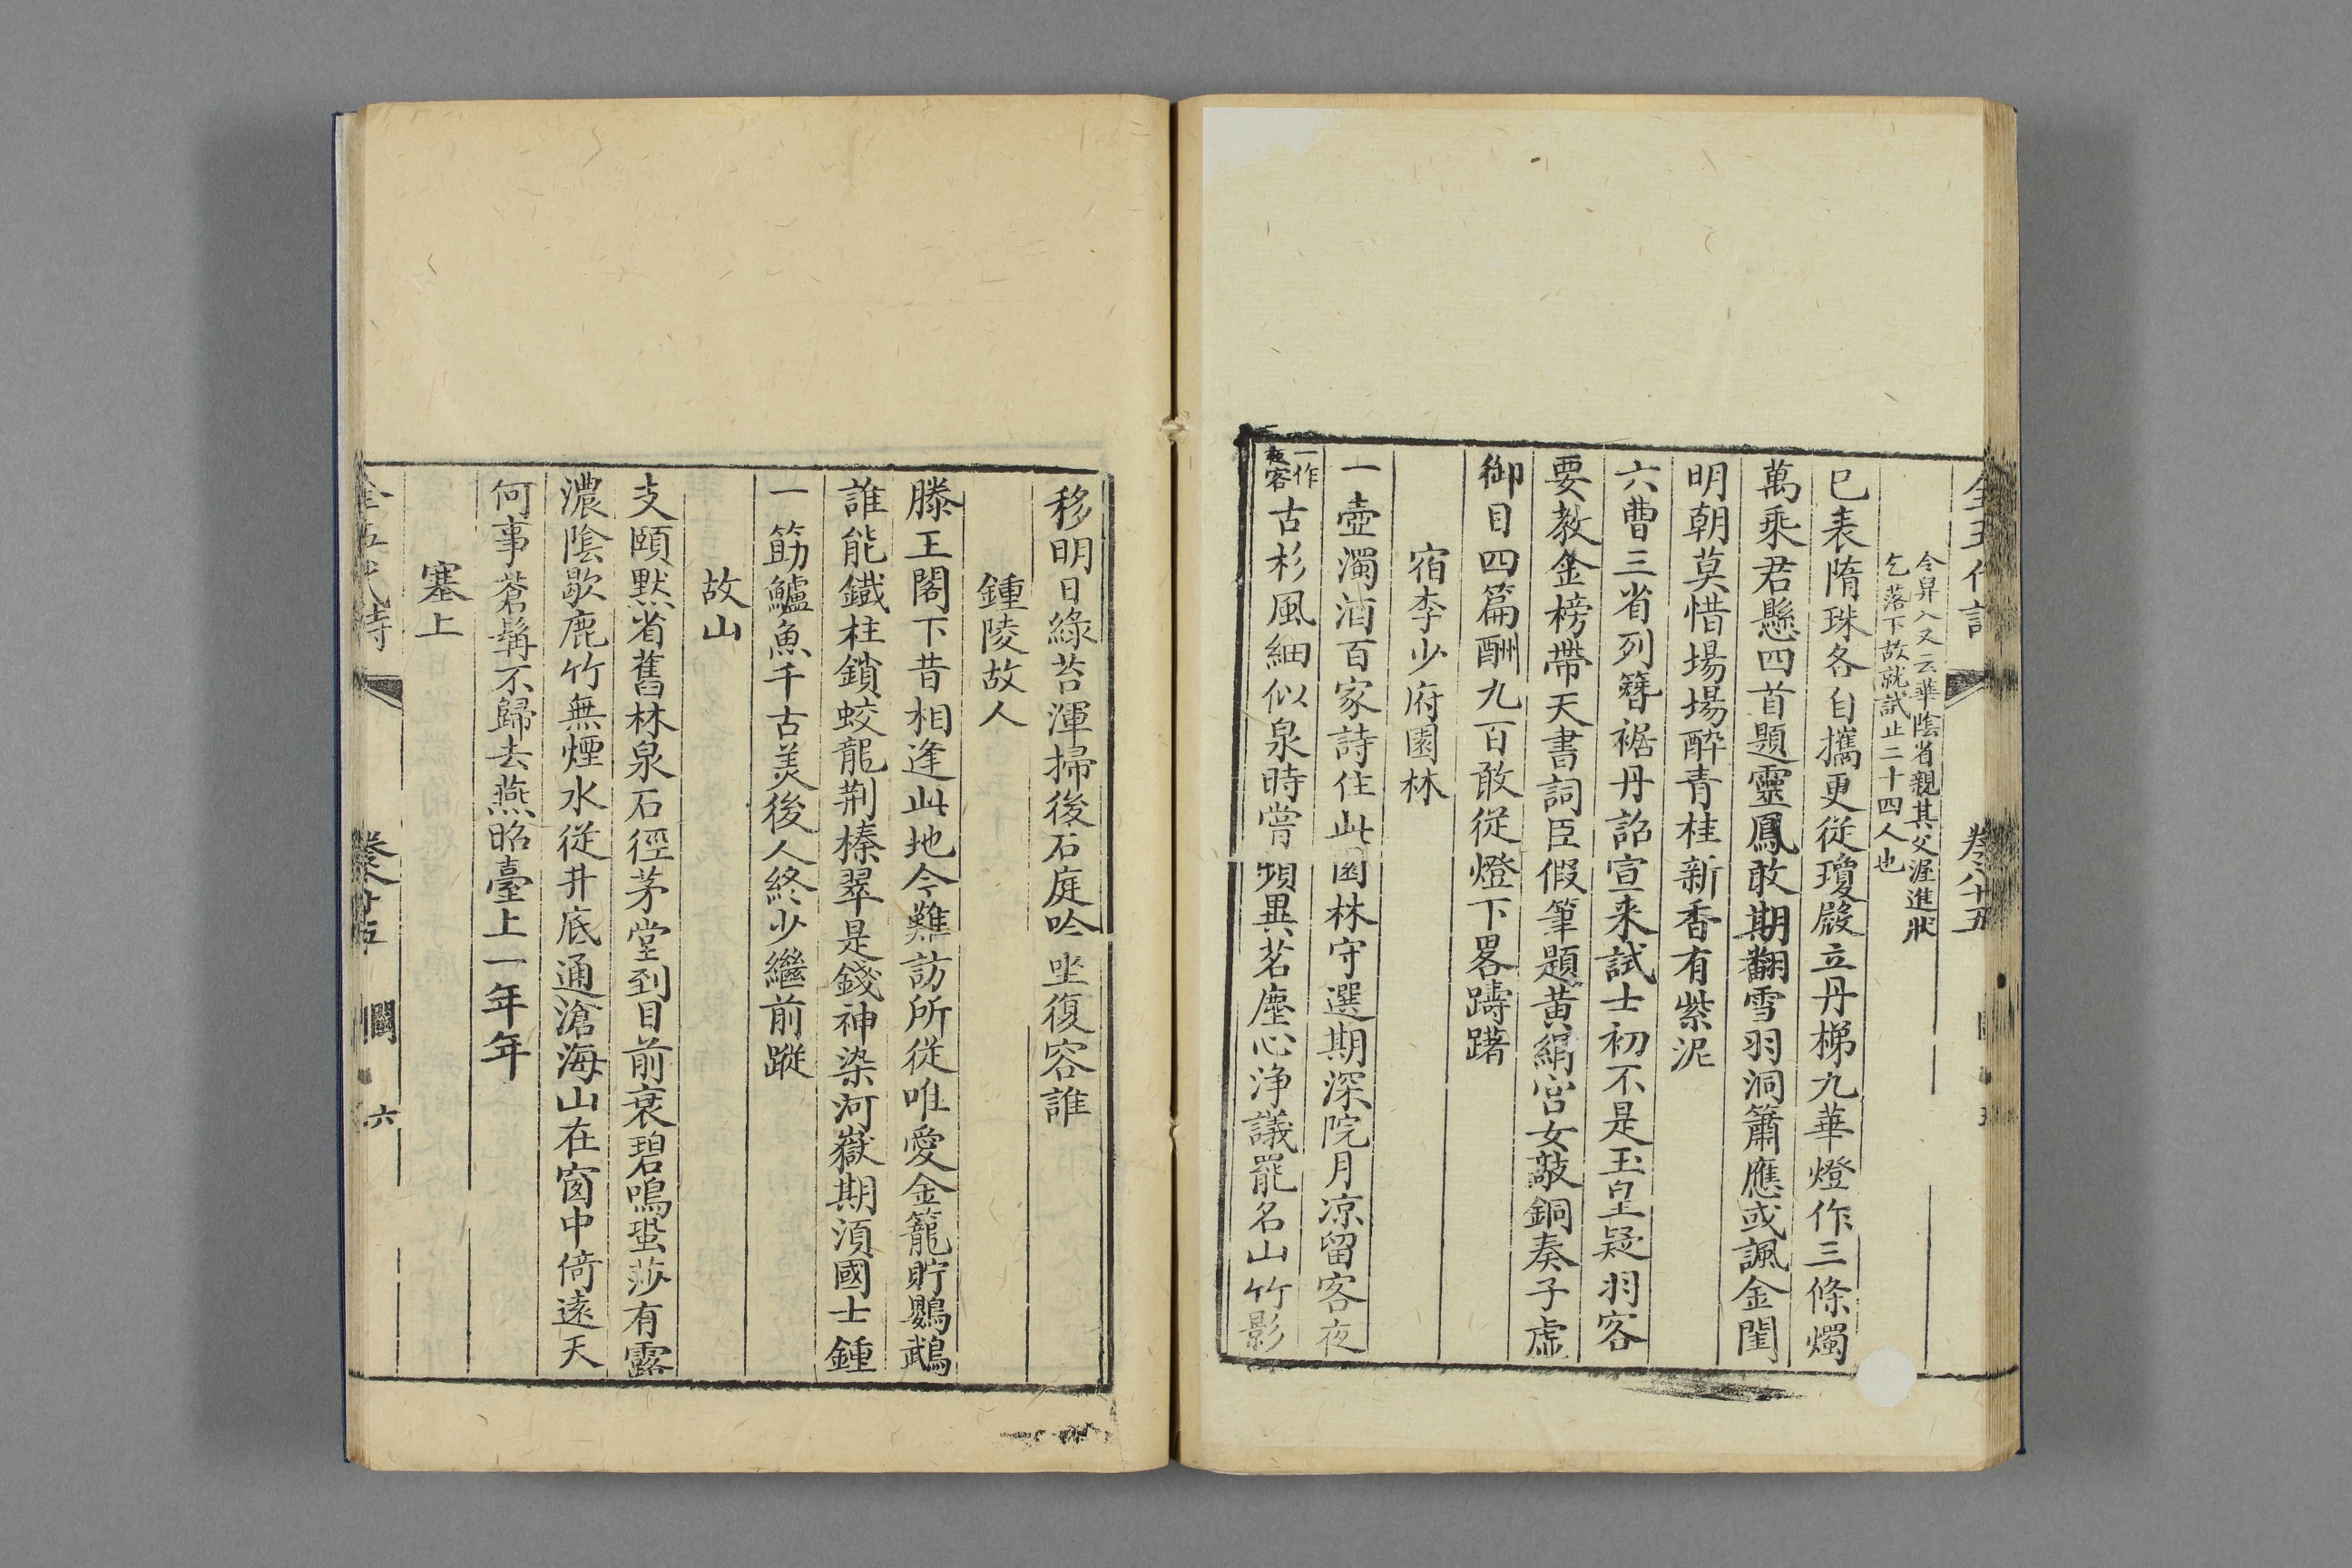 全五代詩 卷八十五
今昇入又云華陰省親其父渥進狀
乞落下故就試止二十四人也
已表隋珠各自攜更從瓊殿立丹梯九華燈作三條燭
萬乘君懸四首題靈鳳敢期翻雪羽洞簫應或諷金閨
明朝莫惜場場醉青桂新香有紫泥
六曹三省列簪裾丹詔宣来試士初不是玉皇疑羽客
要教金榜帶天書詞臣假筆題黃絹宮女敲銅奏子虛
御目四篇酬九百敢從燈下畧躊躇
宿李少府園林
一壺濁酒百家詩住此園林守選期深院月凉留客夜
一作
夜客
古杉風細似泉時嘗頻異茗塵心淨議罷名山竹影
移明日綠苔渾掃後石庭吟坐復容誰
鍾陵故人
滕王閣下昔相逢此地今難訪所從唯愛金籠貯鸚鵡
誰能鐵柱鎖蛟龍荆榛翠是錢神染河嶽期湏國士鍾
一筯鱸魚千古美後人終少繼前蹤
故山
支頤默省舊林泉石徑茅堂到目前衰碧鳴蛩莎有露
濃陰歇鹿竹無煙水從井底通滄海山在窗中倚遠天
何事蒼髯不歸去燕昭臺上一年年
塞上
全五代詩 卷八十五 閩 六